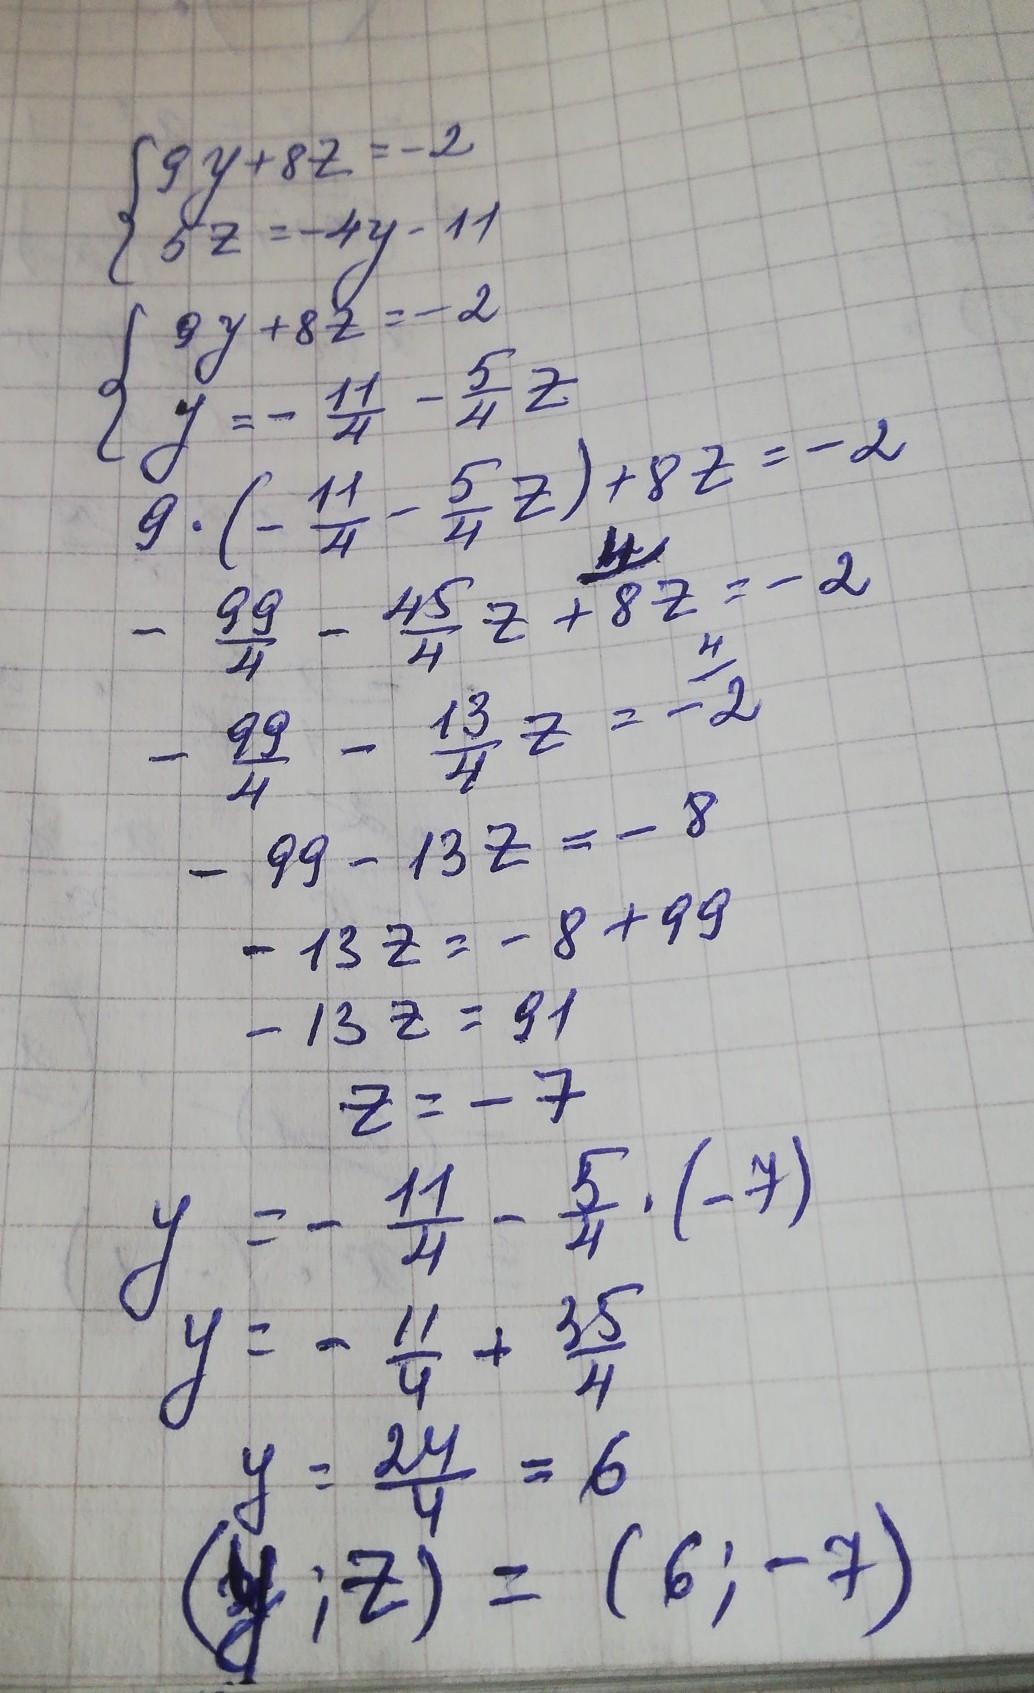 { 9y + 8z = -2
5z = -4y - 11
{ 9y + 8z = -2
y = - 11/4 - 5/4 z
9 · (- 11/4 - 5/4 z) + 8z = -2
- 99/4 - 45/4 z + 4/ 8z = -2
- 99/4 - 13/4 z = 4/ -2
- 99 - 13z = - 8
- 13z = - 8 + 99
- 13z = 91
z = - 7
y = - 11/4 - 5/4 · (-7)
y = - 11/4 + 35/4
y = 24/4 = 6
(y; z) = (6; -7)